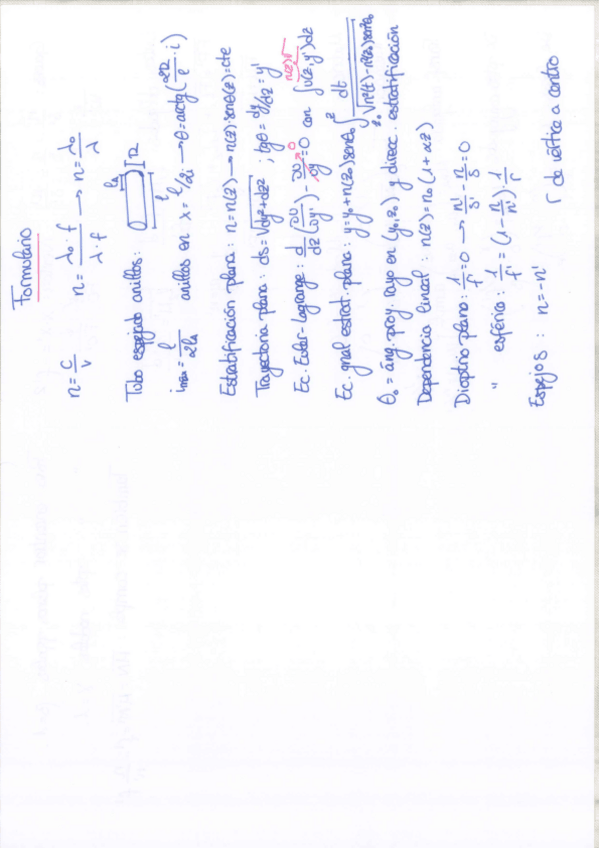 Formulario
n = c/v    n = λ₀·f / λ·f → n = λ₀/λ
Tubo espejado anillos:    R    l
i max = l/2li    anillos en x = l/2i → θ = arctg(2R/l · i)
Estratificación plana: n = n(z) → n(z) senθ(z) = cte
Trayectoria plana: ds = √(dy²+dz²) ; tgθ = dy/dz = y'
Ec. Euler-Lagrange: d/dz(∂U/∂y') - ∂U/∂y = 0 con ∫U(z,y')dz
Ec. gnal estrat. plana: y = y₀ + n(z₀) senθ₀ ∫ dt / √(n²(t) - n²(z₀) sen²θ₀)
θ₀ = áng. proy. rayo en (y₀,z₀) y direcc. estratificación
Dependencia lineal: n(z) = n₀(1+αz)
Dioptrio plano: 1/f' = 0 → n'/s' - n/s = 0
" esférico: 1/f' = (1 - n/n')·1/r
Espejos: n = -n'    r de vértice a centro